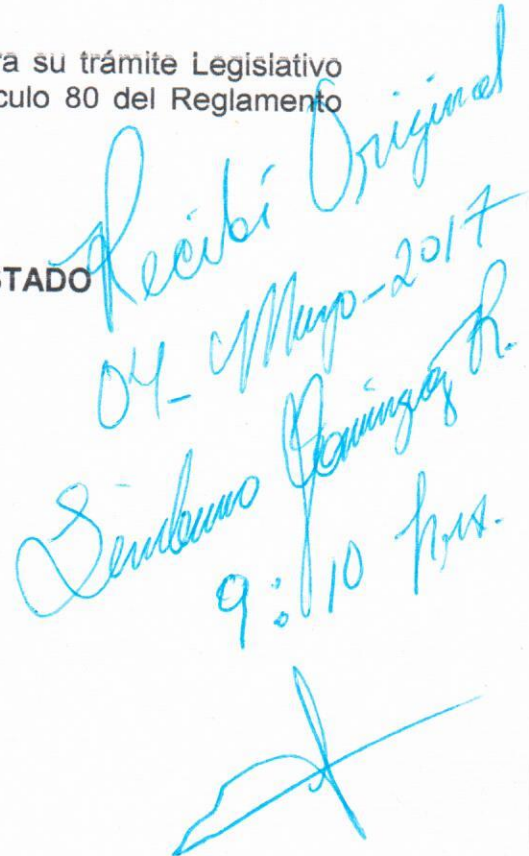 ra su trámite Legislativo
culo 80 del Reglamento
STADO
Recibí Original
04-Mayo-2017
Domínguez R.
9:10 hrs.